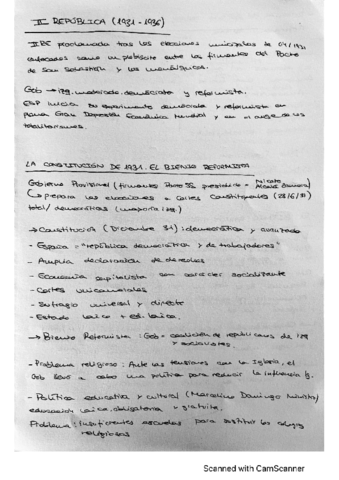 II REPÚBLICA (1931-1936)
II RE proclamada tras las elecciones municipales de 04/1931
enfocadas como un plebiscito entre los firmantes del Pacto
de San Sebastián y los monárquicos.
Gob → izq. moderada, democrata y reformista.
ESP inicia un experimento democrata y reformista en
plena Gran Depresión Económica Mundial y en el auge de los
totalitarismos.
LA CONSTITUCIÓN DE 1931. EL BIENIO REFORMISTA
Gobierno Provisional (firmantes Pacto SS, presidente = Niceto
Alcalá Zamora)
↳ prepara las elecciones a Cortes Constituyentes (28/6/31)
total/ democráticas (mayoría izq.)
→ Constitución (Diciembre 31): democrática y avanzada
- España = "república democrática y de trabajadores"
- Amplia declaración de derechos
- Economía capitalista con carácter socializante
- Cortes unicamerales
- Sufragio universal y directo
- Estado laico + ed. laica.
→ Bienio Reformista: Gob = coalición de republicanos de izq
y socialistas.
- Problema religioso: Ante las tensiones con la Iglesia, el
Gob llevó a cabo una política para reducir la influencia
- Política educativa y cultural (Marcelino Domingo ministro)
educación laica, obligatoria y gratuita.
Problema: insuficientes escuelas para sustituir los colegios
religiosos
Scanned with CamScanner